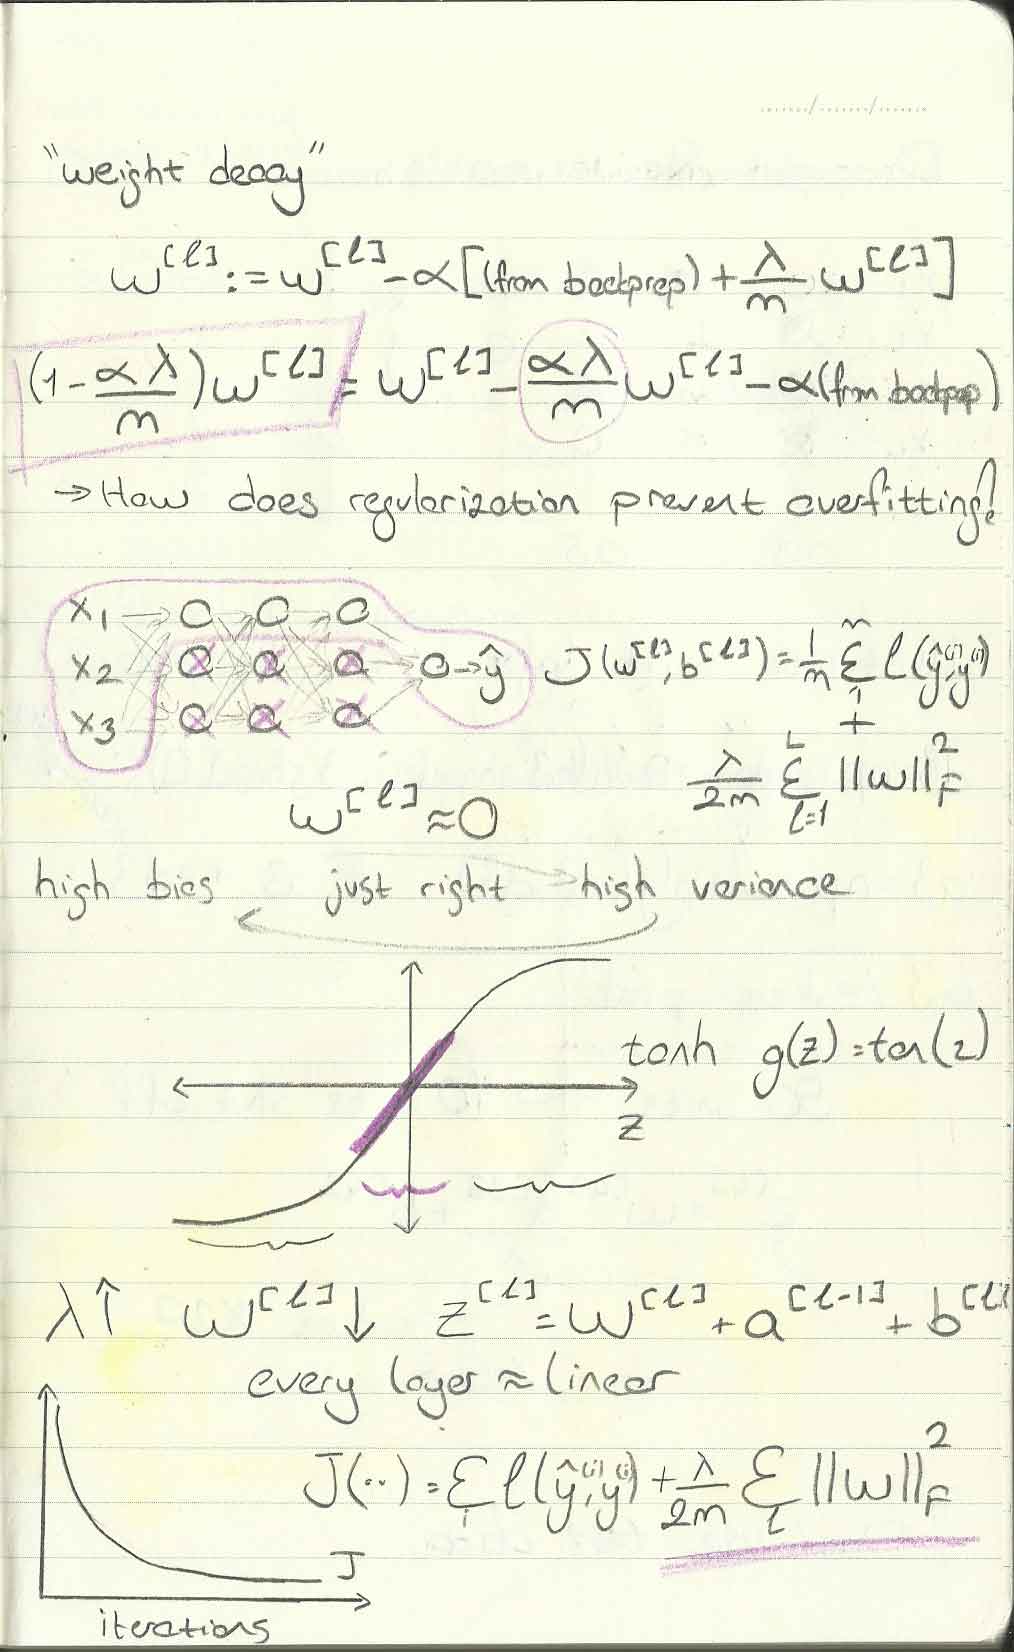 "weight decay"
w^[l] := w^[l] - α[(from backprop) + λ/m w^[l]]
(1 - αλ/m)w^[l] = w^[l] - αλ/m w^[l] - α(from backprop)
→ How does regularization prevent overfitting?
x1
x2
x3
ŷ
J(w^[l], b^[l]) = 1/m Σ_1^m l(ŷ^(i), y^(i))
+
λ/2m Σ_{l=1}^L ||w||_F^2
w^[l] ≈ 0
high bias just right high variance
tanh g(z) = tan(z)
z
λ↑ w^[l]↓ z^[l] = w^[l] + a^[l-1] + b^[l]
every layer ≈ linear
J(··) = Σ_i l(ŷ^(i), y^(i)) + λ/2m Σ_l ||w||_F^2
J
iterations